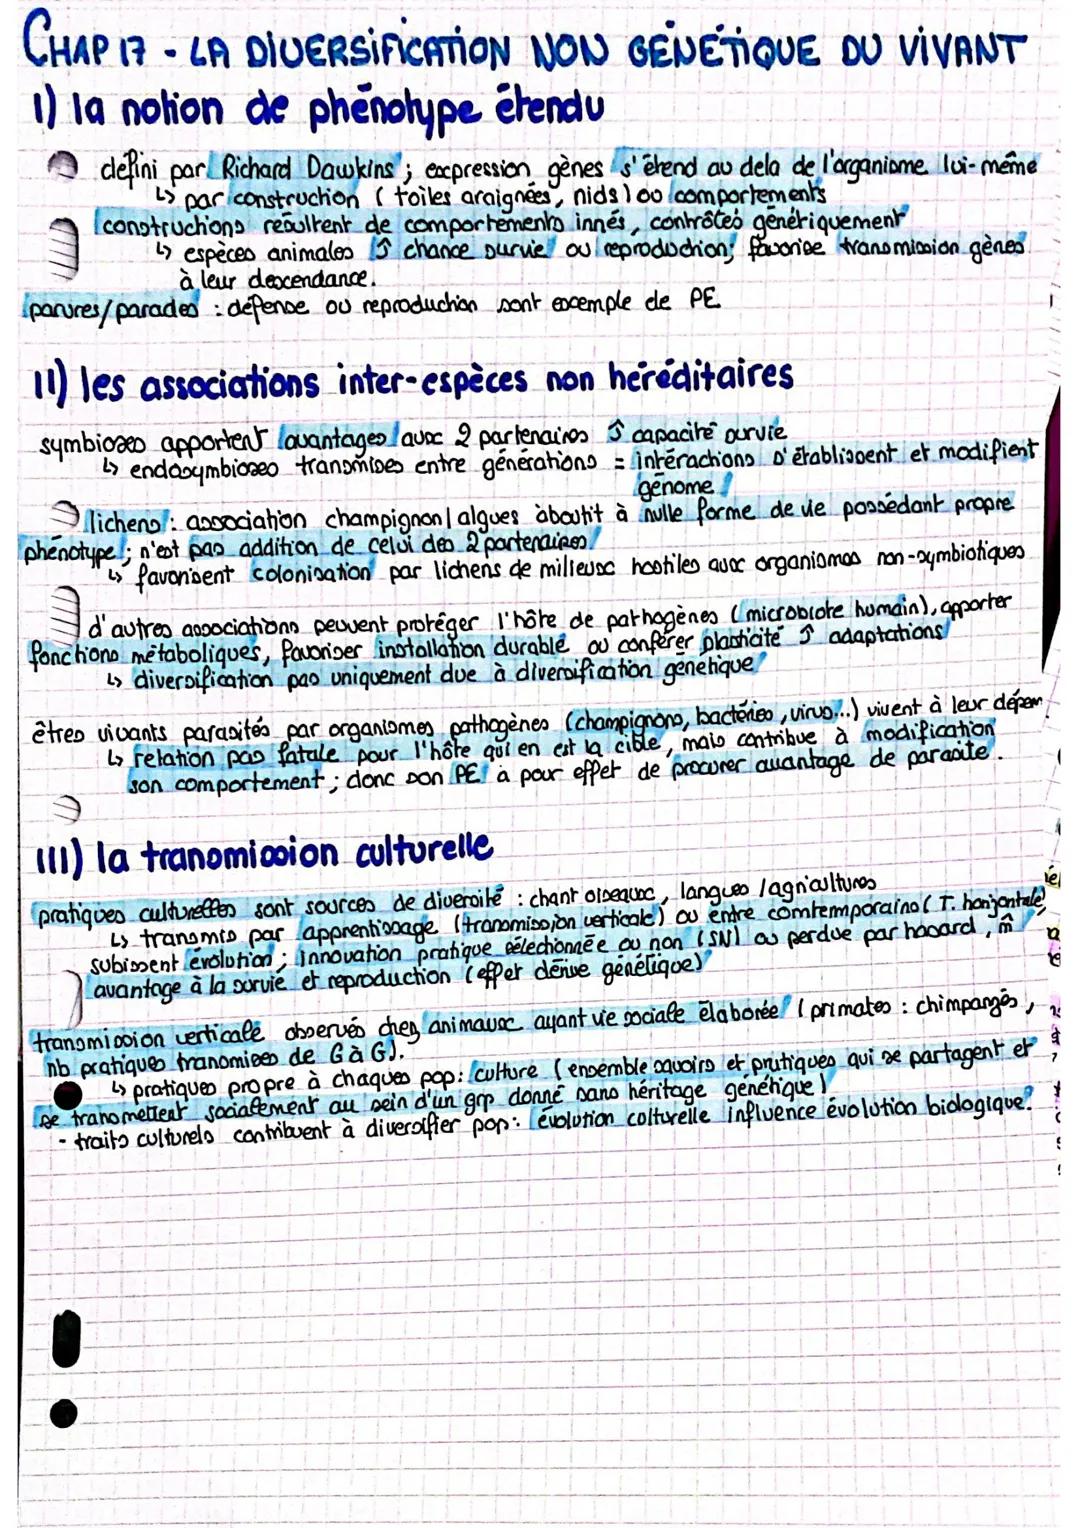 CHAP 17 - LA DIVERSIFICATION NON GÉNÉTIQUE DU VIVANT
I) la notion de phénotype étendu
défini par Richard Dawkins ; expression gènes s'étend au dela de l'organisme lui-même
↳ par construction ( toiles araignées, nids ) ou comportements
constructions résultent de comportements innés, contrôlés génétiquement
↳ espèces animales ↑ chance survie ou reproduction; favorise transmission gènes
à leur descendance.
parures/parades : défense ou reproduction sont exemple de PE
II) les associations inter-espèces non héréditaires
symbioses apportent avantages aux 2 partenaires ↑ capacité survie
↳ endosymbioses transmises entre générations = intéractions s'établissent et modifient
génome
lichens : association champignon/algues aboutit à nvlle forme de vie possédant propre
phénotype ; n'est pas addition de celui des 2 partenaires
↳ favorisent colonisation par lichens de milieux hostiles aux organismes non-symbiotiques
d'autres associations peuvent protéger l'hôte de pathogènes ( microbiote humain), apporter
fonctions métaboliques, favoriser installation durable ou conférer plasticité ↑ adaptations
↳ diversification pas uniquement due à diversification génétique
êtres vivants parasités par organismes pathogènes (champignons, bactéries, virus...) vivent à leur dépen
↳ relation pas fatale pour l'hôte qui en est la cible, mais contribue à modification
son comportement ; donc son PE a pour effet de procurer avantage de parasite.
III) la transmission culturelle
pratiques culturelles sont sources de diversité : chant oiseaux, langues / agricultures
↳ transmis par apprentissage (transmission verticale) ou entre comtemporains ( T. horizontale)
subissent évolution ; innovation pratique sélectionnée ou non (SN) ou perdue par hasard, m̂
avantage à la survie et reproduction (effet dérive génétique)
transmission verticale observés chez animaux ayant vie sociale élaborée ( primates : chimpanzés,
nb pratiques transmises de G à G).
↳ pratiques propre à chaques pop: culture ( ensemble savoirs et pratiques qui se partagent et
se transmettent socialement au sein d'un grp donné sans héritage génétique )
- traits culturels contribuent à diversifier pop: évolution culturelle influence évolution biologique.